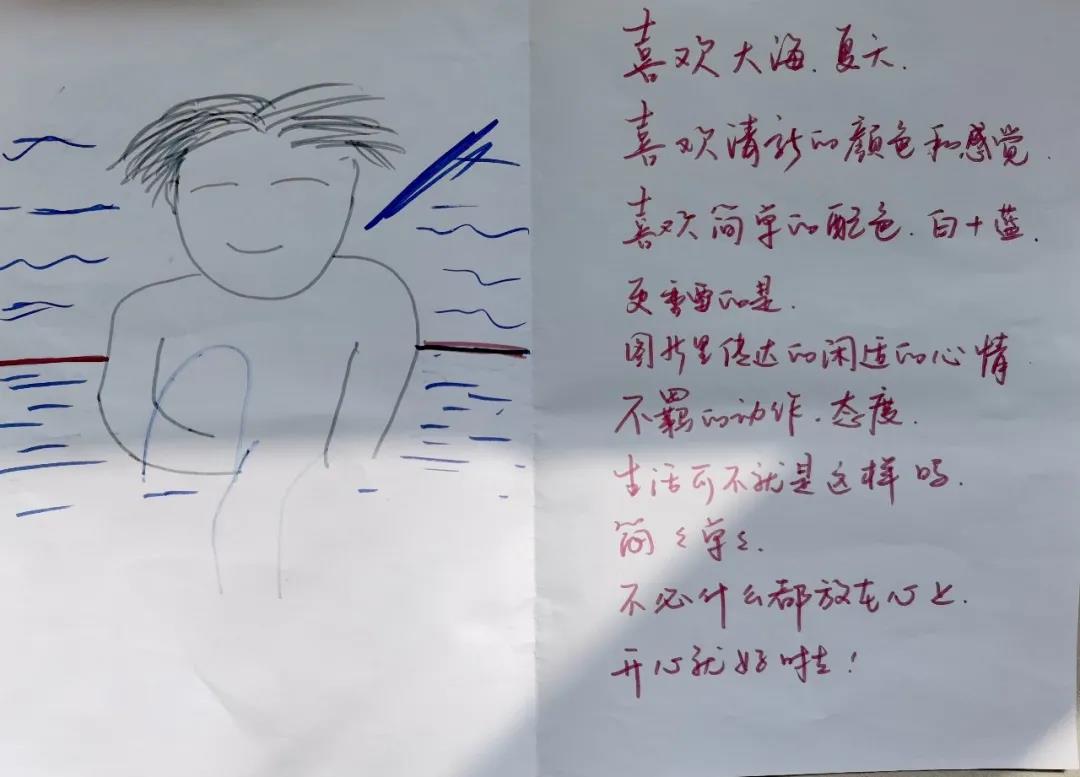 喜欢大海、夏天.
喜欢清新的颜色和感觉.
喜欢简单的配色、白+蓝.
更重要的是.
图片里传达的闲适的心情
不羁的动作、态度.
生活可不就是这样吗.
简々单々.
不必什么都放在心上.
开心就好哇!